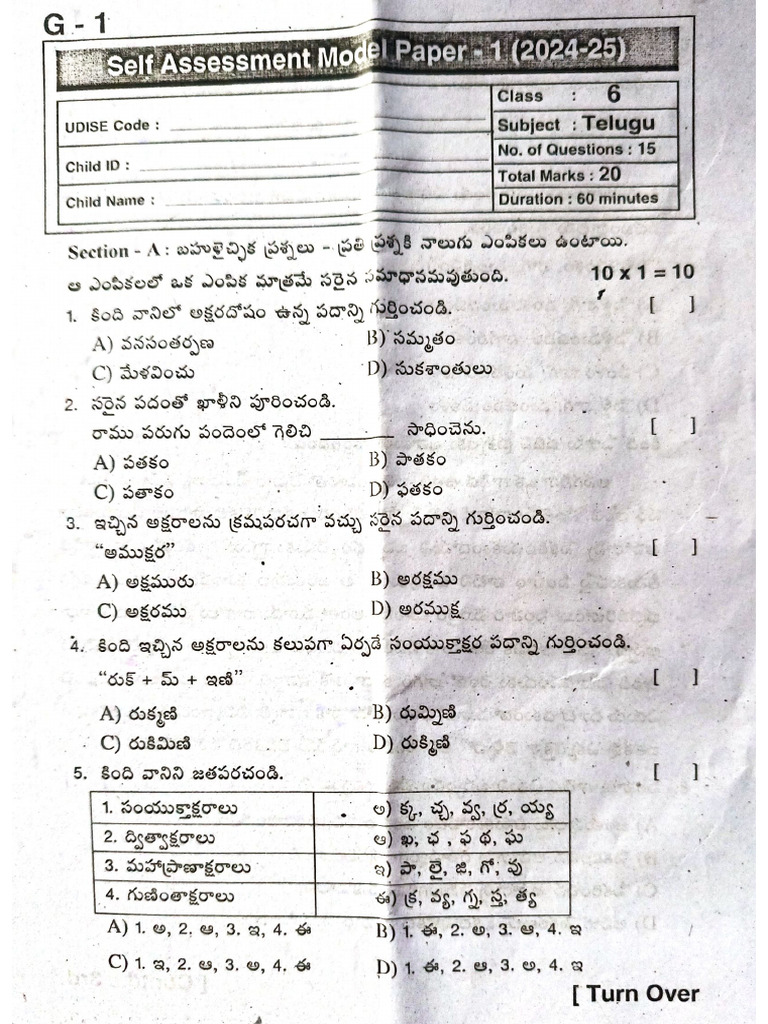 G - 1
Self Assessment Model Paper - 1 (2024-25)
UDISE Code :
Child ID :
Child Name :
Class : 6
Subject : Telugu
No. of Questions : 15
Total Marks : 20
Duration : 60 minutes
Section - A : బహుళైచ్ఛిక ప్రశ్నలు – ప్రతి ప్రశ్నకి నాలుగు ఎంపికలు ఉంటాయి.
ఆ ఎంపికలలో ఒక ఎంపిక మాత్రమే సరైన సమాధానమవుతుంది. 10 x 1 = 10
1. కింది వానిలో అక్షరదోషం ఉన్న పదాన్ని గుర్తించండి. [ ]
A) వనసంతర్పణ B) సమ్మతం
C) మేళవించు D) సుకశాంతులు
2. సరైన పదంతో ఖాళీని పూరించండి.
రాము పరుగు పందెంలో గెలిచి ________ సాధించెను. [ ]
A) పతకం B) పాతకం
C) పతాకం D) ఫతకం
3. ఇచ్చిన అక్షరాలను క్రమపరచగా వచ్చు సరైన పదాన్ని గుర్తించండి.
“అముక్షర” [ ]
A) అక్షమురు B) అరక్షము
C) అక్షరము D) అరముక్ష
4. కింది ఇచ్చిన అక్షరాలను కలుపగా ఏర్పడే సంయుక్తాక్షర పదాన్ని గుర్తించండి.
“రుక్ + మ్ + ఇణి” [ ]
A) రుక్మణి B) రుమ్నిణి
C) రుకిమిణి D) రుక్మిణి
5. కింది వానిని జతపరచండి. [ ]
1. సంయుక్తాక్షరాలు అ) క్క, చ్చ, వ్వ, ర్ర, య్య
2. ద్విత్వాక్షరాలు ఆ) ఖ, ఛ , ఫ థ, ఘ
3. మహాప్రాణాక్షరాలు ఇ) పా, లై, జి, గో, వు
4. గుణింతాక్షరాలు ఈ) క్ర, వ్య, గ్న, స్త, త్య
A) 1. అ, 2. ఆ, 3. ఇ, 4. ఈ B) 1. ఈ, 2. అ, 3. ఆ, 4. ఇ
C) 1. ఇ, 2. ఆ, 3. అ, 4. ఈ D) 1. ఈ, 2. ఆ, 3. అ, 4. ఇ
[ Turn Over